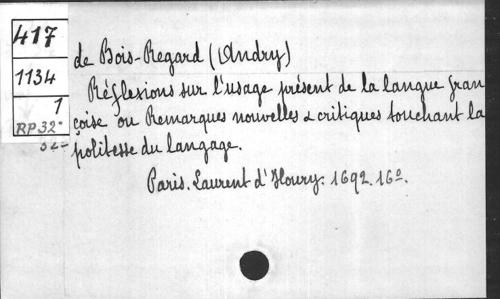 417
1134
1
RP 32°
32-
de Bois-Regard (Andry)
Réflexions sur l'usage présent de la langue fran
çoise ou Remarques nouvelles & critiques touchant la
politesse du langage.
Paris. Laurent d'Houry. 1692. 16°.